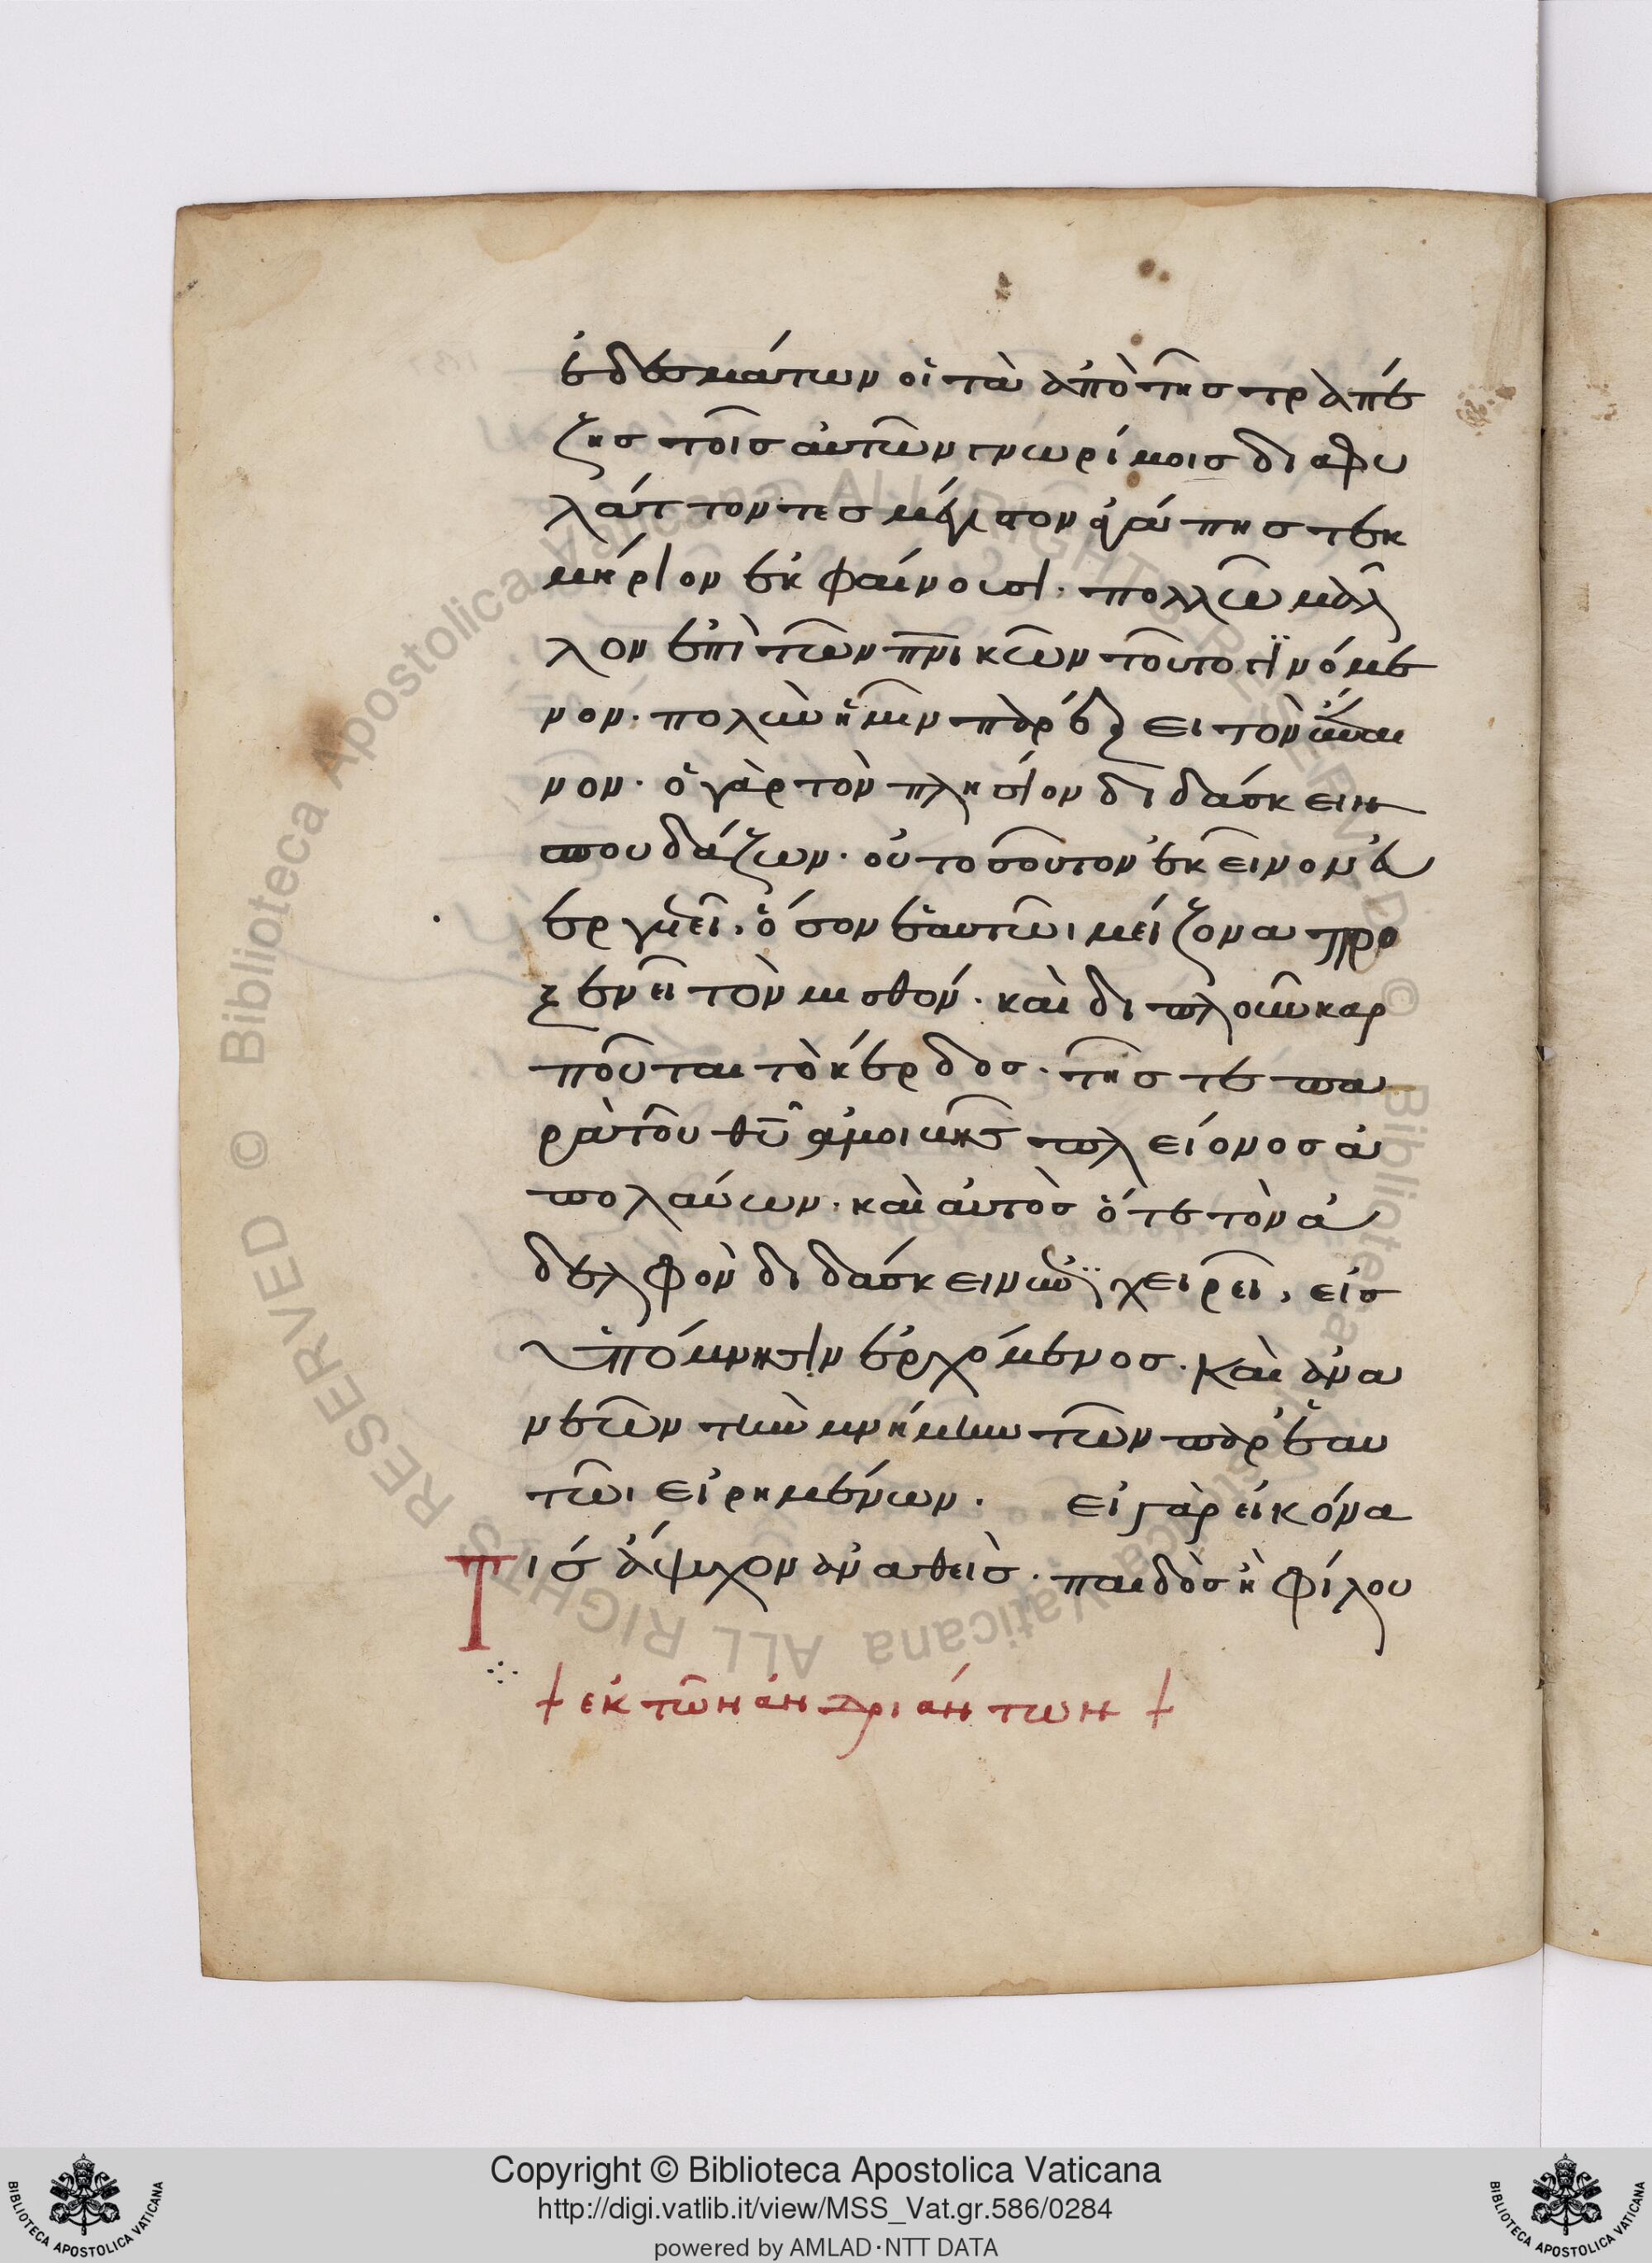 ἐδεσμάτων οἱ τὰ ἀπὸ τῆς τραπέ
ζης τοῖς αὐτῶν γνωρίμοις διαφυ
λάττοντες μέγιστον ἀγάπης τεκ
μήριον ἐκφαίνουσι. πολλῶ μᾶλ
λον ἐπὶ τῶν πνικῶν τοῦτο γϊνόμε
νον. πολὺν ἡμῖν παρέξει τὸν ἔπαι
νον. ὁ γὰρ τὸν πλησίον διδάσκειν
σπουδάζων. οὐ τοσοῦτον ἐκεῖνον εὐ
εργετεῖ, ὅσον ἑαυτῶι μείζονα προ
ξενεῖ τὸν μισθόν. καὶ διπλοῦν καρ
ποῦται τὸ κέρδος. τῆς τε πα
ρὰ τοῦ θῦ ἀμοιβῆς πλείονος ἀ
πολαύων. καὶ αὐτὸς ὅτε τὸν ἀ
δελφὸν διδάσκειν ἐπϊχειρεῖ, εἰς
ὑπόμνησιν ἐρχόμενος. καὶ ἀνα
νεῶν τὴν μνήμην τῶν παρ' ἑαυ
τῶι εἰρημένων. εἰ γὰρ εἰκόνα
Τις ἄψυχον ἀναθεὶς. παιδὸς ἢ φίλου
+ ἐκ τῶν ἀνδριάντων +
Copyright © Biblioteca Apostolica Vaticana
http://digi.vatlib.it/view/MSS_Vat.gr.586/0284
powered by AMLAD·NTT DATA
BIBLIOTECA APOSTOLICA VATICANA
BIBLIOTECA APOSTOLICA VATICANA
© Biblioteca Apostolica Vaticana ALL RIGHTS RESERVED
© Biblioteca Apostolica Vaticana ALL RIGHTS RESERVED